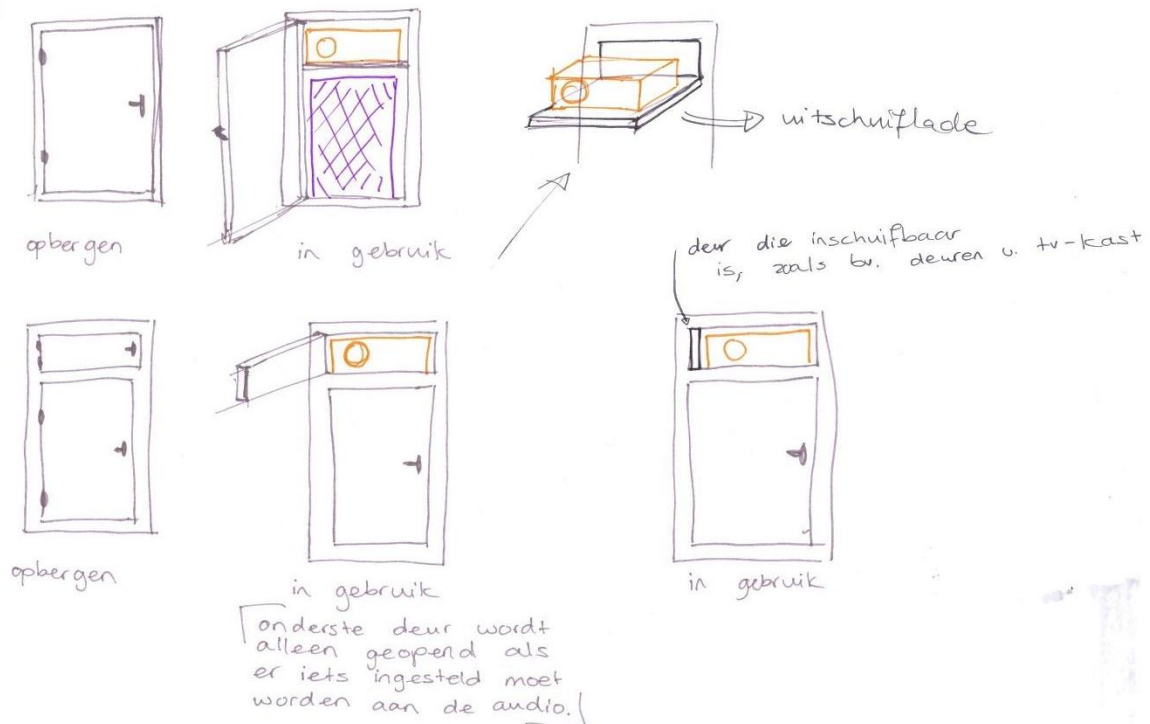 uitschuiflade
opbergen
in gebruik
deur die inschuifbaar
is, zoals bv. deuren v. tv-kast
opbergen
in gebruik
in gebruik
onderste deur wordt
alleen geopend als
er iets ingesteld moet
worden aan de audio.